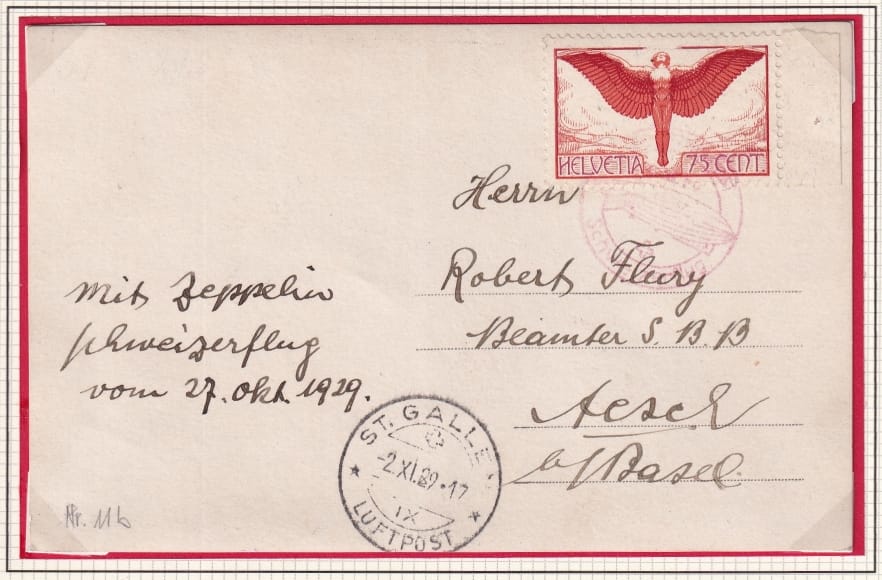 HELVETIA 75 CENT.
Herrn
Robert Flury
Beamter S.B.B
Aesch
b/Basel
Mit Zeppelin
schweizerflug
vom 27. Okt. 1929.
ST. GALLEN
-2.XI.29.-17
IX
LUFTPOST
Nr. 11b